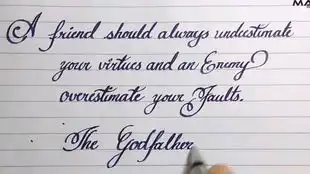 A friend should always undestimate
your virtues and an Enemy
overestimate your Faults.
The Godfather